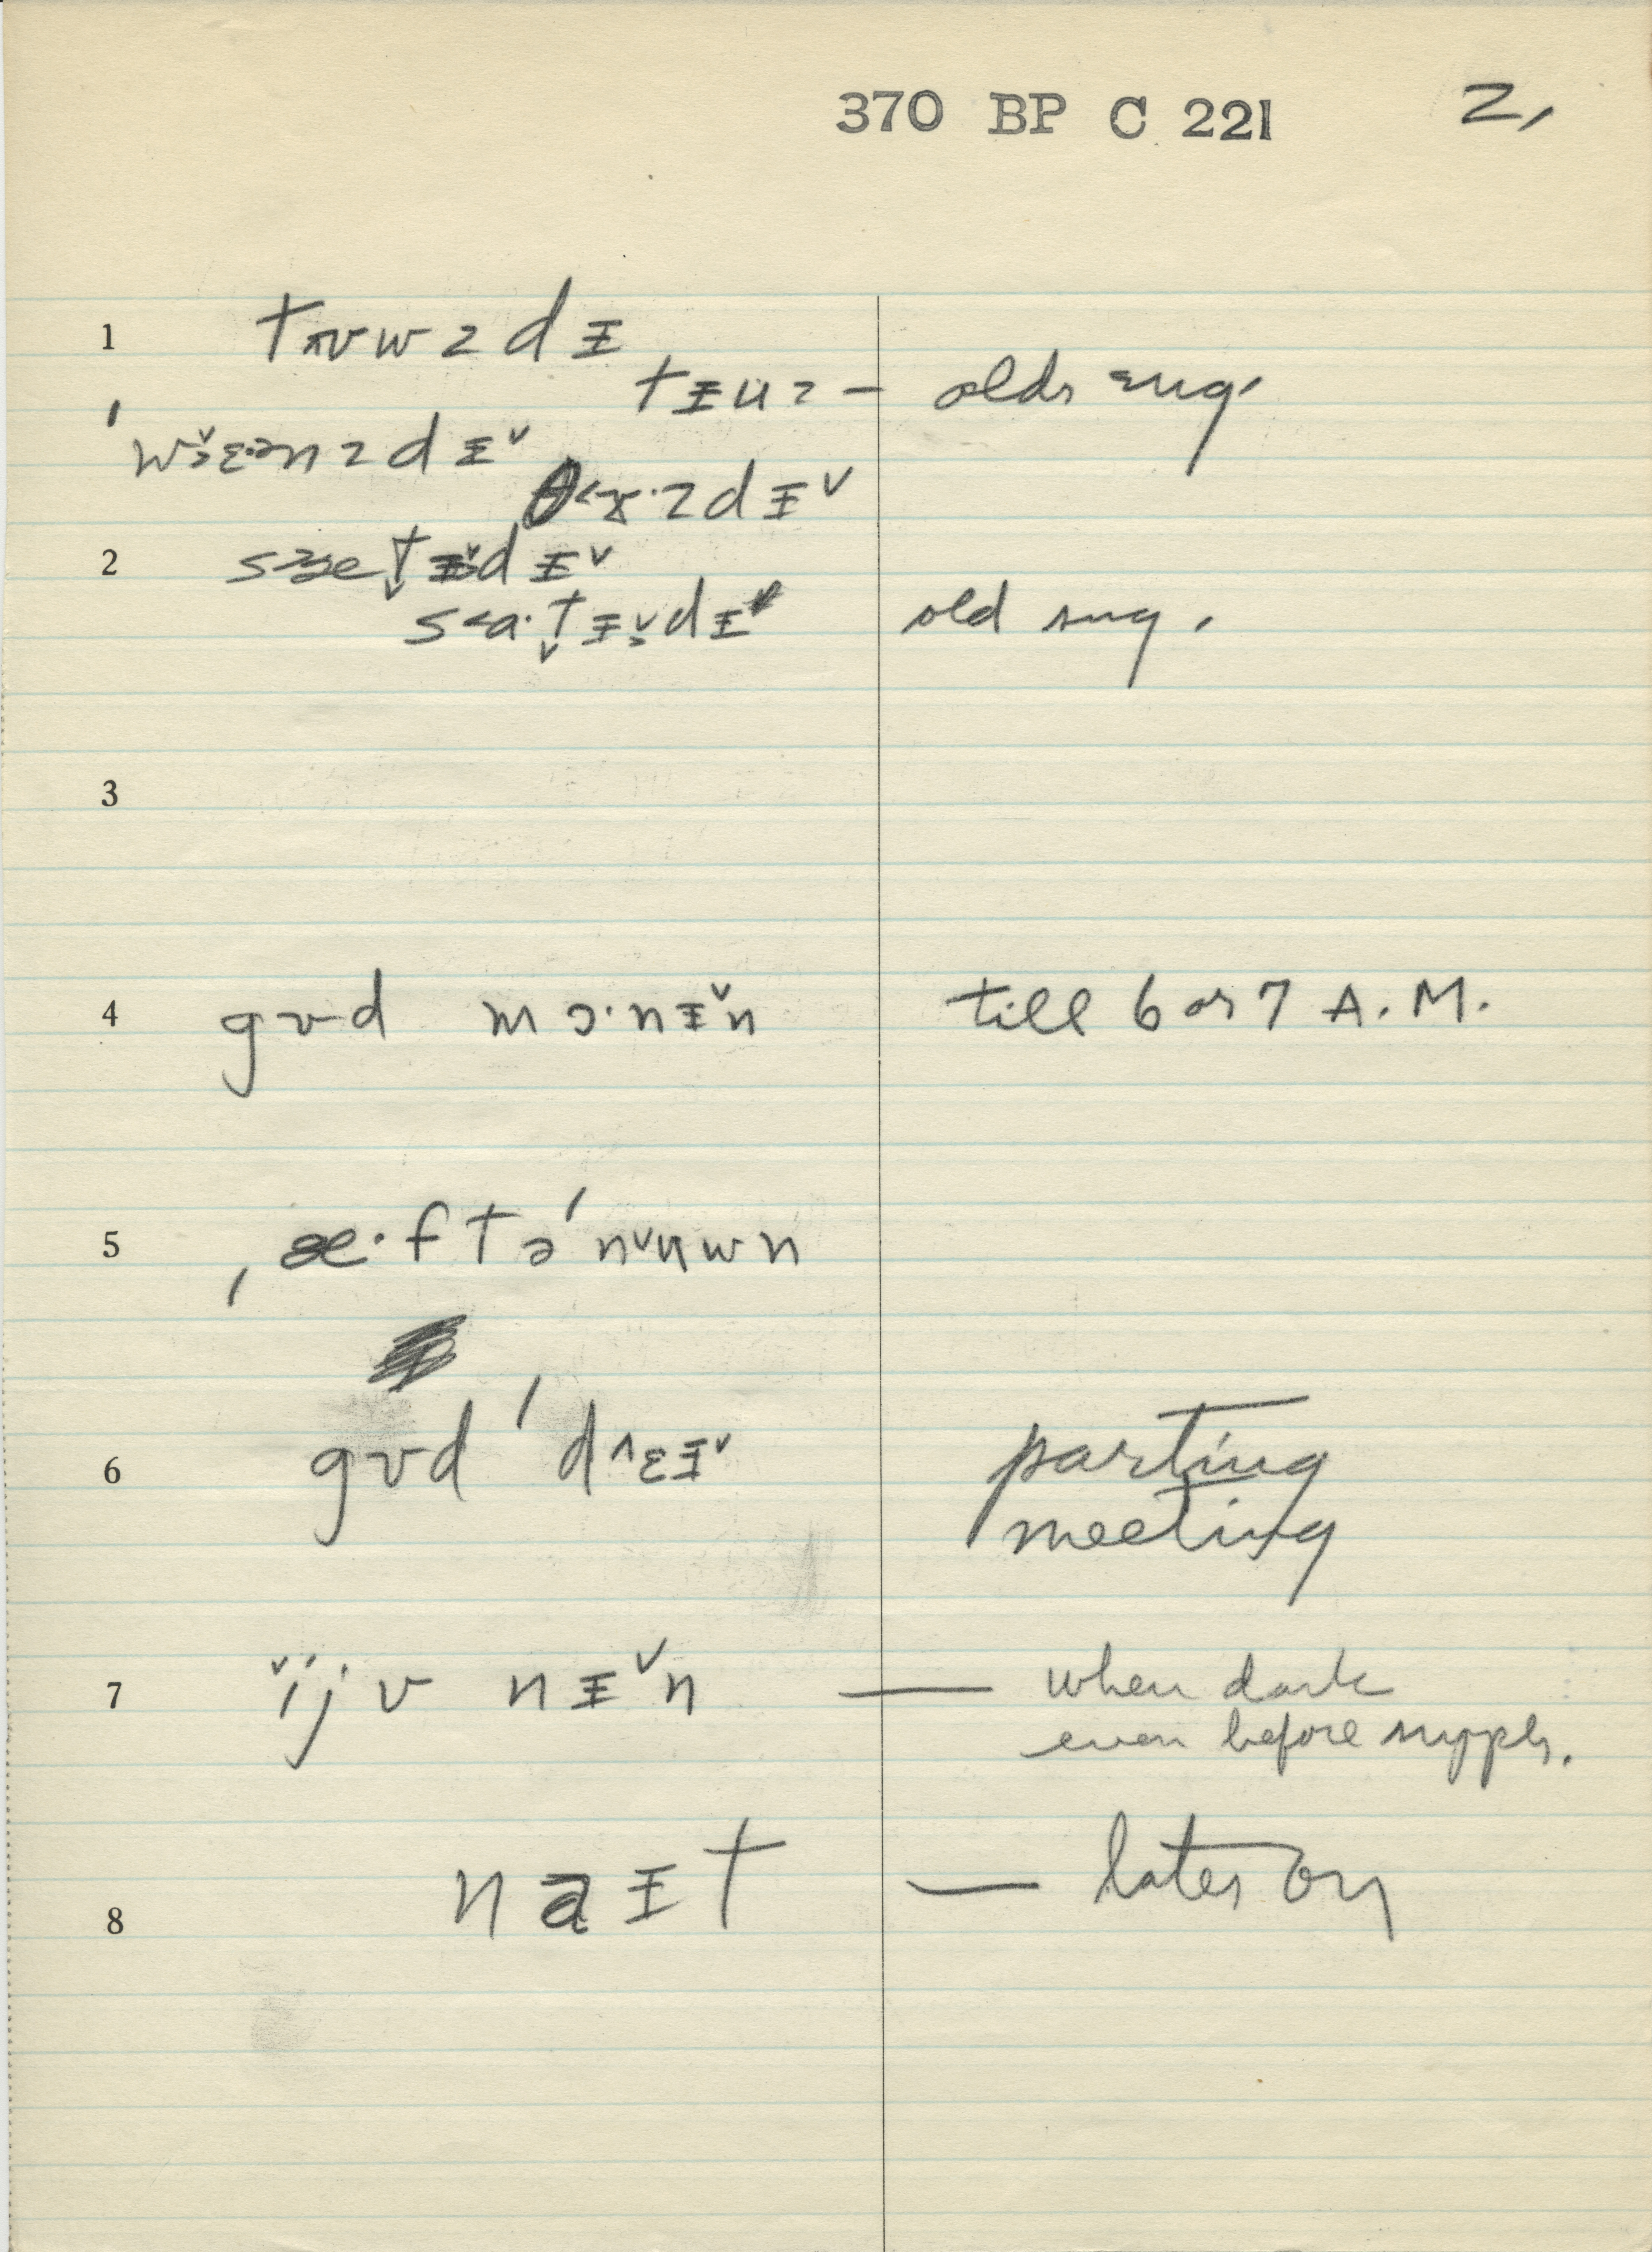 370 BP C 221 2,
1 tʌʊwzdᵻ
tᵻuz— olds sug.
ˈwɛənzdᵻ˅
θ˂ɤ·zdᵻ˅
2 sætᵻdᵻ˅
s˂a·tᵻdᵻ˅ old sug.
3
4 gʊd mɔ·nᵻ˅n till 6 or 7 A.M.
5 ˌæ·ftəˈnʊwn
6 gʊdˈd˄ɛᵻ˅ parting
meeting
7 ijv nᵻ˅n — when dark
even before supper.
8 naᵻt — later on